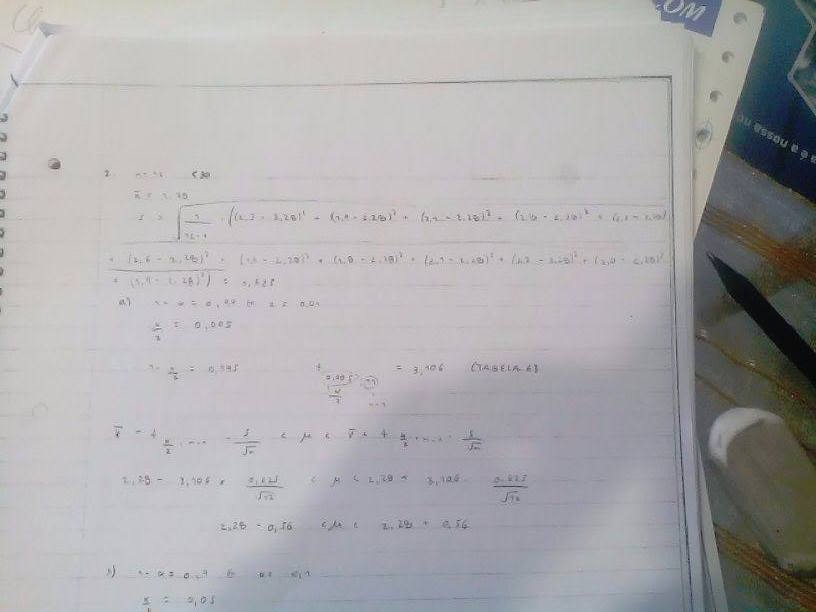 .COM
é a nossa no
2. n = 12 < 30
x̄ = 2,28
s = √ 1/12-1 · ((2,3 - 2,28)² + (1,9 - 2,28)² + (2,1 - 2,28)² + (2,8 - 2,28)² + (2,3 - 2,28)²
+ (2,6 - 2,28)² + - 2,28)² + (1,8 - 2,28)² + (2,1 - 2,28)² + - 2,28)² + (2,0 - 2,28)²
+ (1,9 - 2,28)²) =
a) 1 - α = 0,99 α = 0,01
α/2 = 0,005
1 - α/2 = 0,995 t 0,005 ; 11 = 3,106 (TABELA 6)
α/2 n-1
x̄ - t α/2 ; n-1 · s/√n < μ < x̄ + t α/2 ; n-1 · s/√n
2,28 - 3,106 × 0,625/√12 < μ < 2,28 + 3,106 · 0,625/√12
2,28 - 0,56 < μ < 2,28 + 0,56
b) 1 - α = 0,9 α = 0,1
α/2 = 0,05